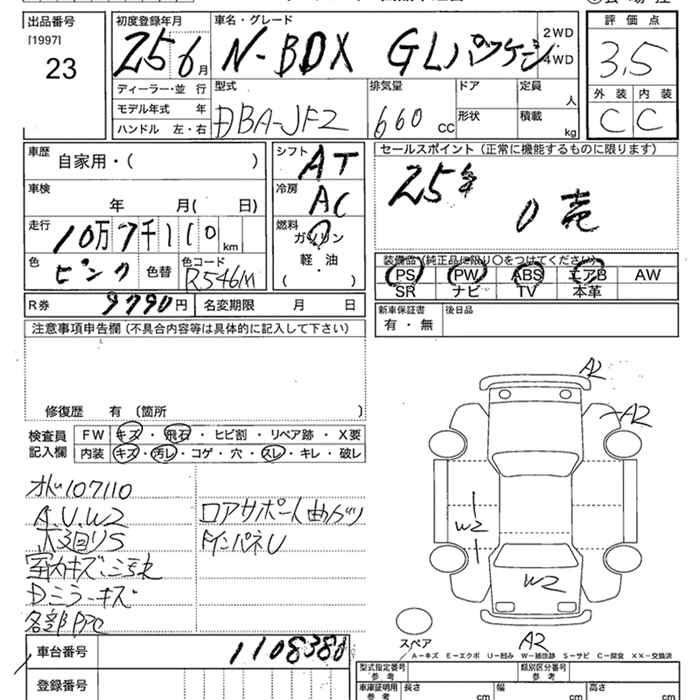 出品番号
[1997]
23
初度登録年月
25 6月
車名・グレード
N-BOX GLパッケージ
2WD
4WD
評価点
3.5
外装 内装
C C
ディーラー・並 行
モデル年式 年
ハンドル 左・右
型式
DBA-JF2
排気量
660 CC
ドア
形状
定員
人
積載
kg
車歴
自家用・( )
車検
年 月( 日)
走行
10万7千110 km
色
ピンク
色替
色コード
R546M
シフト
AT
冷房
AC
燃料
ガソリン
軽・油
( )
セールスポイント(正常に機能するものに限ります)
25年
装備品(純正品に限り○をつけてください)
PS PW ABS エアB AW
SR ナビ TV 本革
R券 9790円
名変期限 月 日
新車保証書
有・無
後日品
注意事項申告欄(不具合内容等は具体的に記入して下さい)
修復歴 有 (箇所 )
検査員
記入欄
FW キズ・飛石・ヒビ割・リペア跡・X要
内装 キズ・汚レ・コゲ・穴・スレ・キレ・破レ
107110
A.U.W2
下回りS
室内キズ、汚れ
Dミラーキズ
各部PPC
ロアサポート曲ガリ
インパネU
A2
A2
W2
W2
A2
スペア
A-キズ E-エクボ U-凹み W-補修跡 S-サビ C-腐食 XX-交換済
車台番号
1108380
登録番号
型式指定番号
参考
類別区分番号
参考
車庫証明用
参考
長さ
cm
幅
cm
高さ
cm